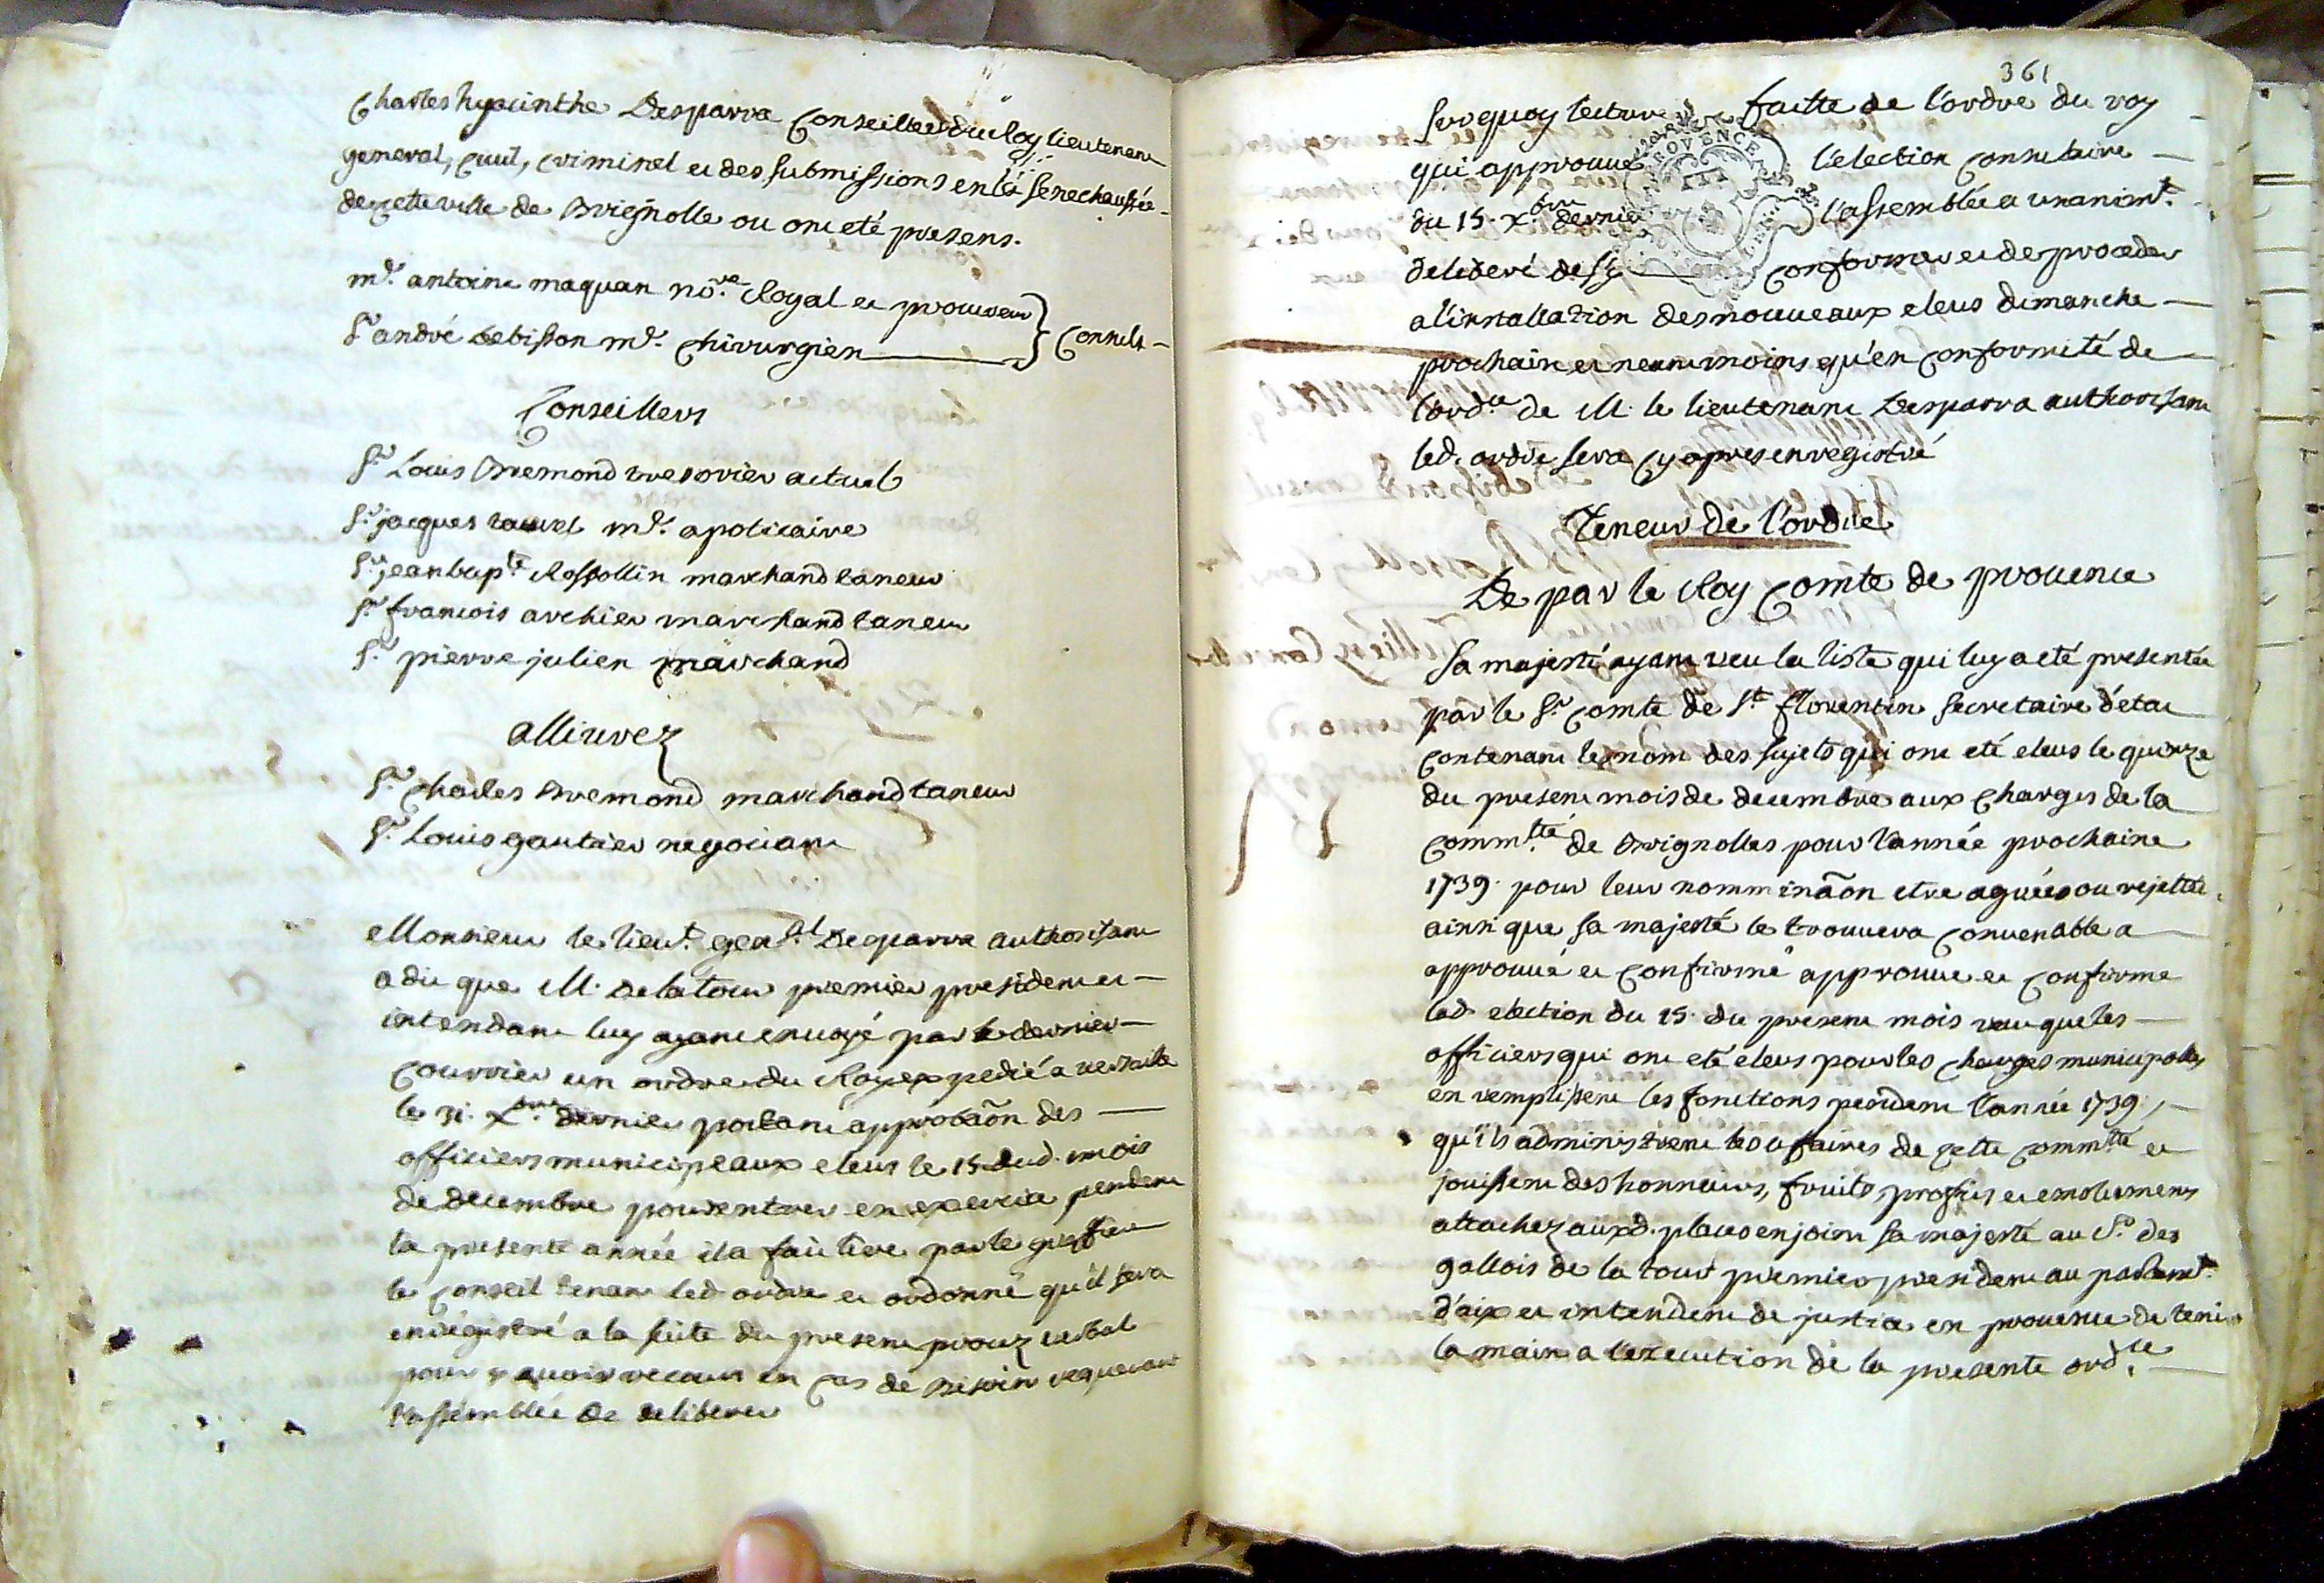 Charles hyacinthe Desparra Conseiller du Roy lieutenent
general, Civil, criminel et des submissions en la senechaussée
de cette ville de Brignolle ou ont eté presens.
me. antoine maquan nore. Royal et procureur
Sr andré debisson me. chirurgien } Consuls
Conseillers
Sr. Louis Bremond tresorier actuel
Sr. jacques me. apoticaire
Sr. jean bapte. Rossollin marchand taneur
Sr. francois archier marchand taneur
Sr. pierre julien marchand
alliurez
Sr. Charles Bremond marchand taneur
Sr. Louis gautier negociant
Monsieur le lieut. genal. Desparra authorisant
a dit que M. De la tour premier president et
intendant luy ayant envoyé par le dernier
Courrier un ordre du Roy expedié a versaille
le 31. Xbre. dernier portant approbaôn des
officiers municipeaux eleus le 15 dud. mois
de decembre pour entrer en exercice pendent
la presente année il a fait lire par le greffier
le Conseil tenant led. ordre et ordonné qu'il sera
enregistré a la suite du present procez verbal
pour y avoir recours en cas de besoin requerant
l'assemblée de deliberer
361
sur quoy lecture faitte de l'ordre du roy
qui approuve l'election consulaire
du 15. Xbre dernier l'assemblée a unanimt.
deliberé de s'y conformer et de proceder
PROVENCE
a l'installation des nouveaux eleus dimanche
prochain et neanmoins qu'en conformité de
l'ordce de M. le lieutenant Desparra authorisant
led. ordre sera cy apres enregistré
Teneur de l'ordre
De par le Roy Comte de provence
Sa majesté ayant veu la liste qui luy a eté presentée
par le Sr. Comte de St. florentin secretaire d'etat
Contenant les nom des sujets qui ont eté eleus le quinze
du present mois de decembre aux charges de la
Commté. de Brignolles pour l'année prochaine
1739. pour leur nomminâon etre agréée ou rejettée
ainsi que sa majesté le trouvera convenable a
approuvé et confirmé approuve et confirme
lad. election du 15. du present mois veut que les
officiers qui ont eté eleus pour les charges municipalles
en remplissent les fonctions pendent l'année 1739.,
qu'ils administrent les affaires de cette Commté et
jouissent des honneurs, fruits, profits et emolumens
attachez auxd. places enjoint sa majesté au Sr. des
gallois de la tour premier president au parlemt.
d'aix et intendent de justice en provence de tenir
la main a l'execution de la presente ordce.